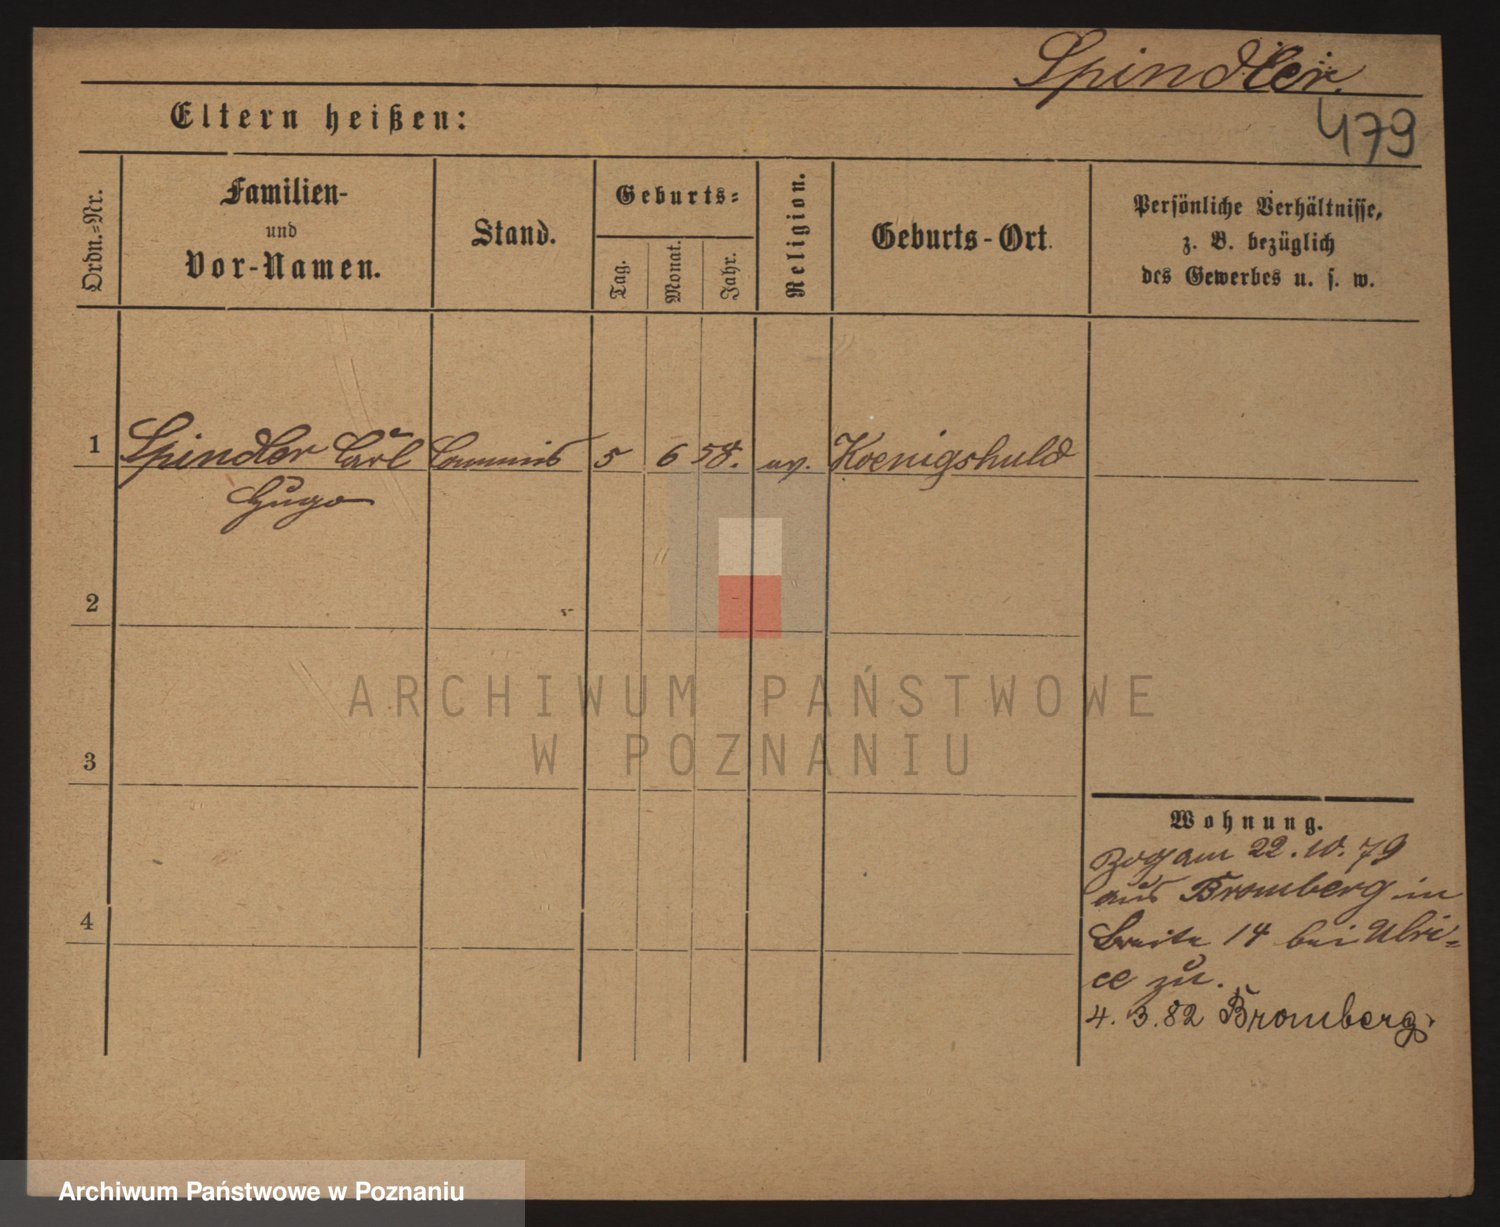 Spindler.
Eltern heißen:
479
Ordn.=Nr.
Familien-
und
Vor-Namen.
Stand.
Geburts=
Tag.
Monat.
Jahr.
Religion.
Geburts-Ort.
Persönliche Verhältnisse,
z. B. bezüglich
des Gewerbes u. s. w.
1 Spindler Carl Commis 5 6 58. ev. Koenigshuld
Hugo
2
ARCHIWUM PAŃSTWOWE
W POZNANIU
3
Wohnung.
Zog am 22.10.79
aus Bromberg in
Breite 14 bei Ulri=
4
ce zu.
4.3.82 Bromberg.
Archiwum Państwowe w Poznaniu